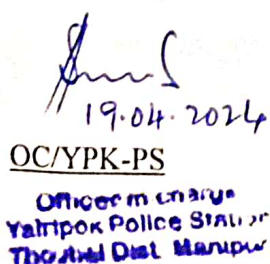 19.04.2024
OC/YPK-PS
Officer in charge
Yairipok Police Station
Thoubal Dist. Manipur